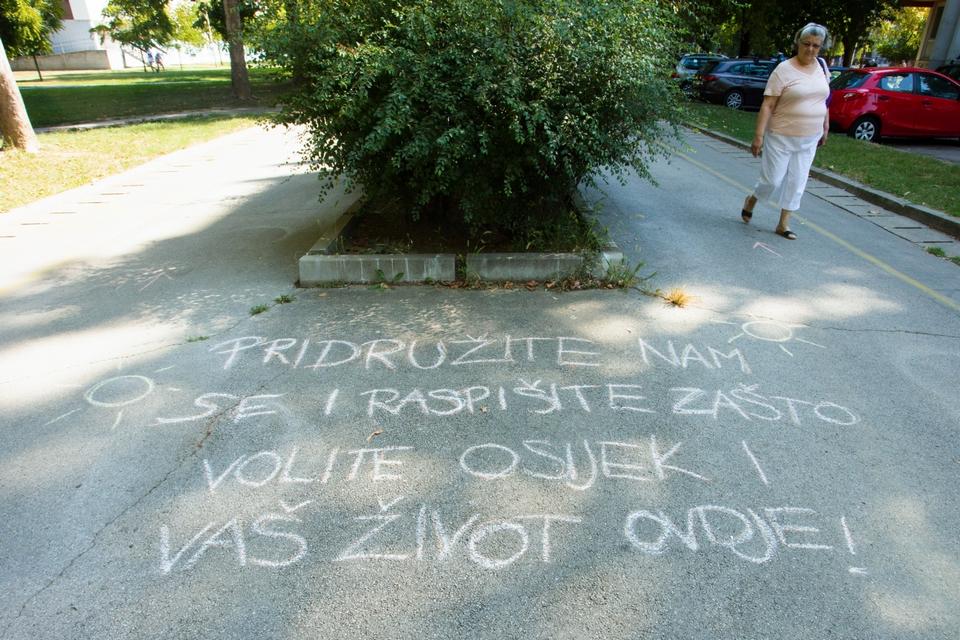 PRIDRUŽITE NAM
SE I RASPIŠITE ZAŠTO
VOLITE OSIJEK I
VAŠ ŽIVOT OVDJE!